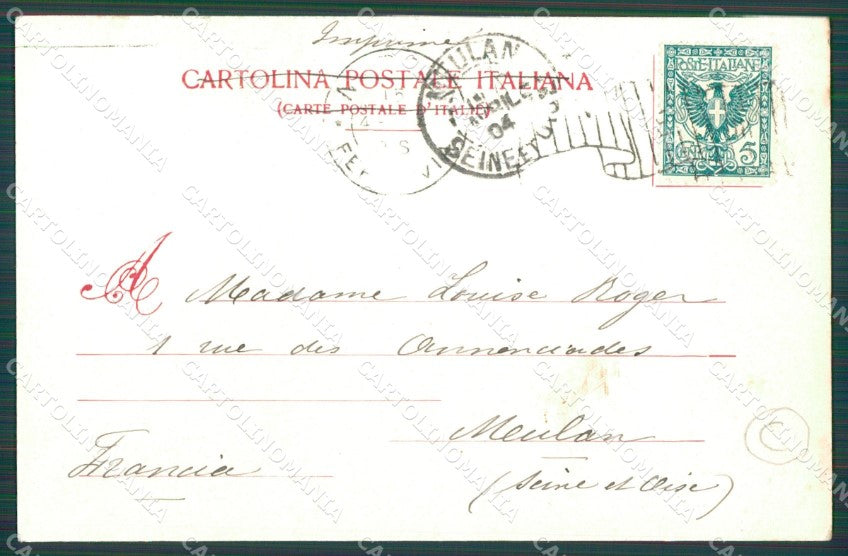 Imprimé
CARTOLINA POSTALE ITALIANA
(CARTE POSTALE D'ITALIE)
MEULAN
AVRIL
04
SEINE ET OISE
POSTE ITALIANE
CENT. 5
A Madame Louise Roger
1 rue des Annonciades
Meulan
Francia
(Seine et Oise)
C
CARTOLINOMANIA